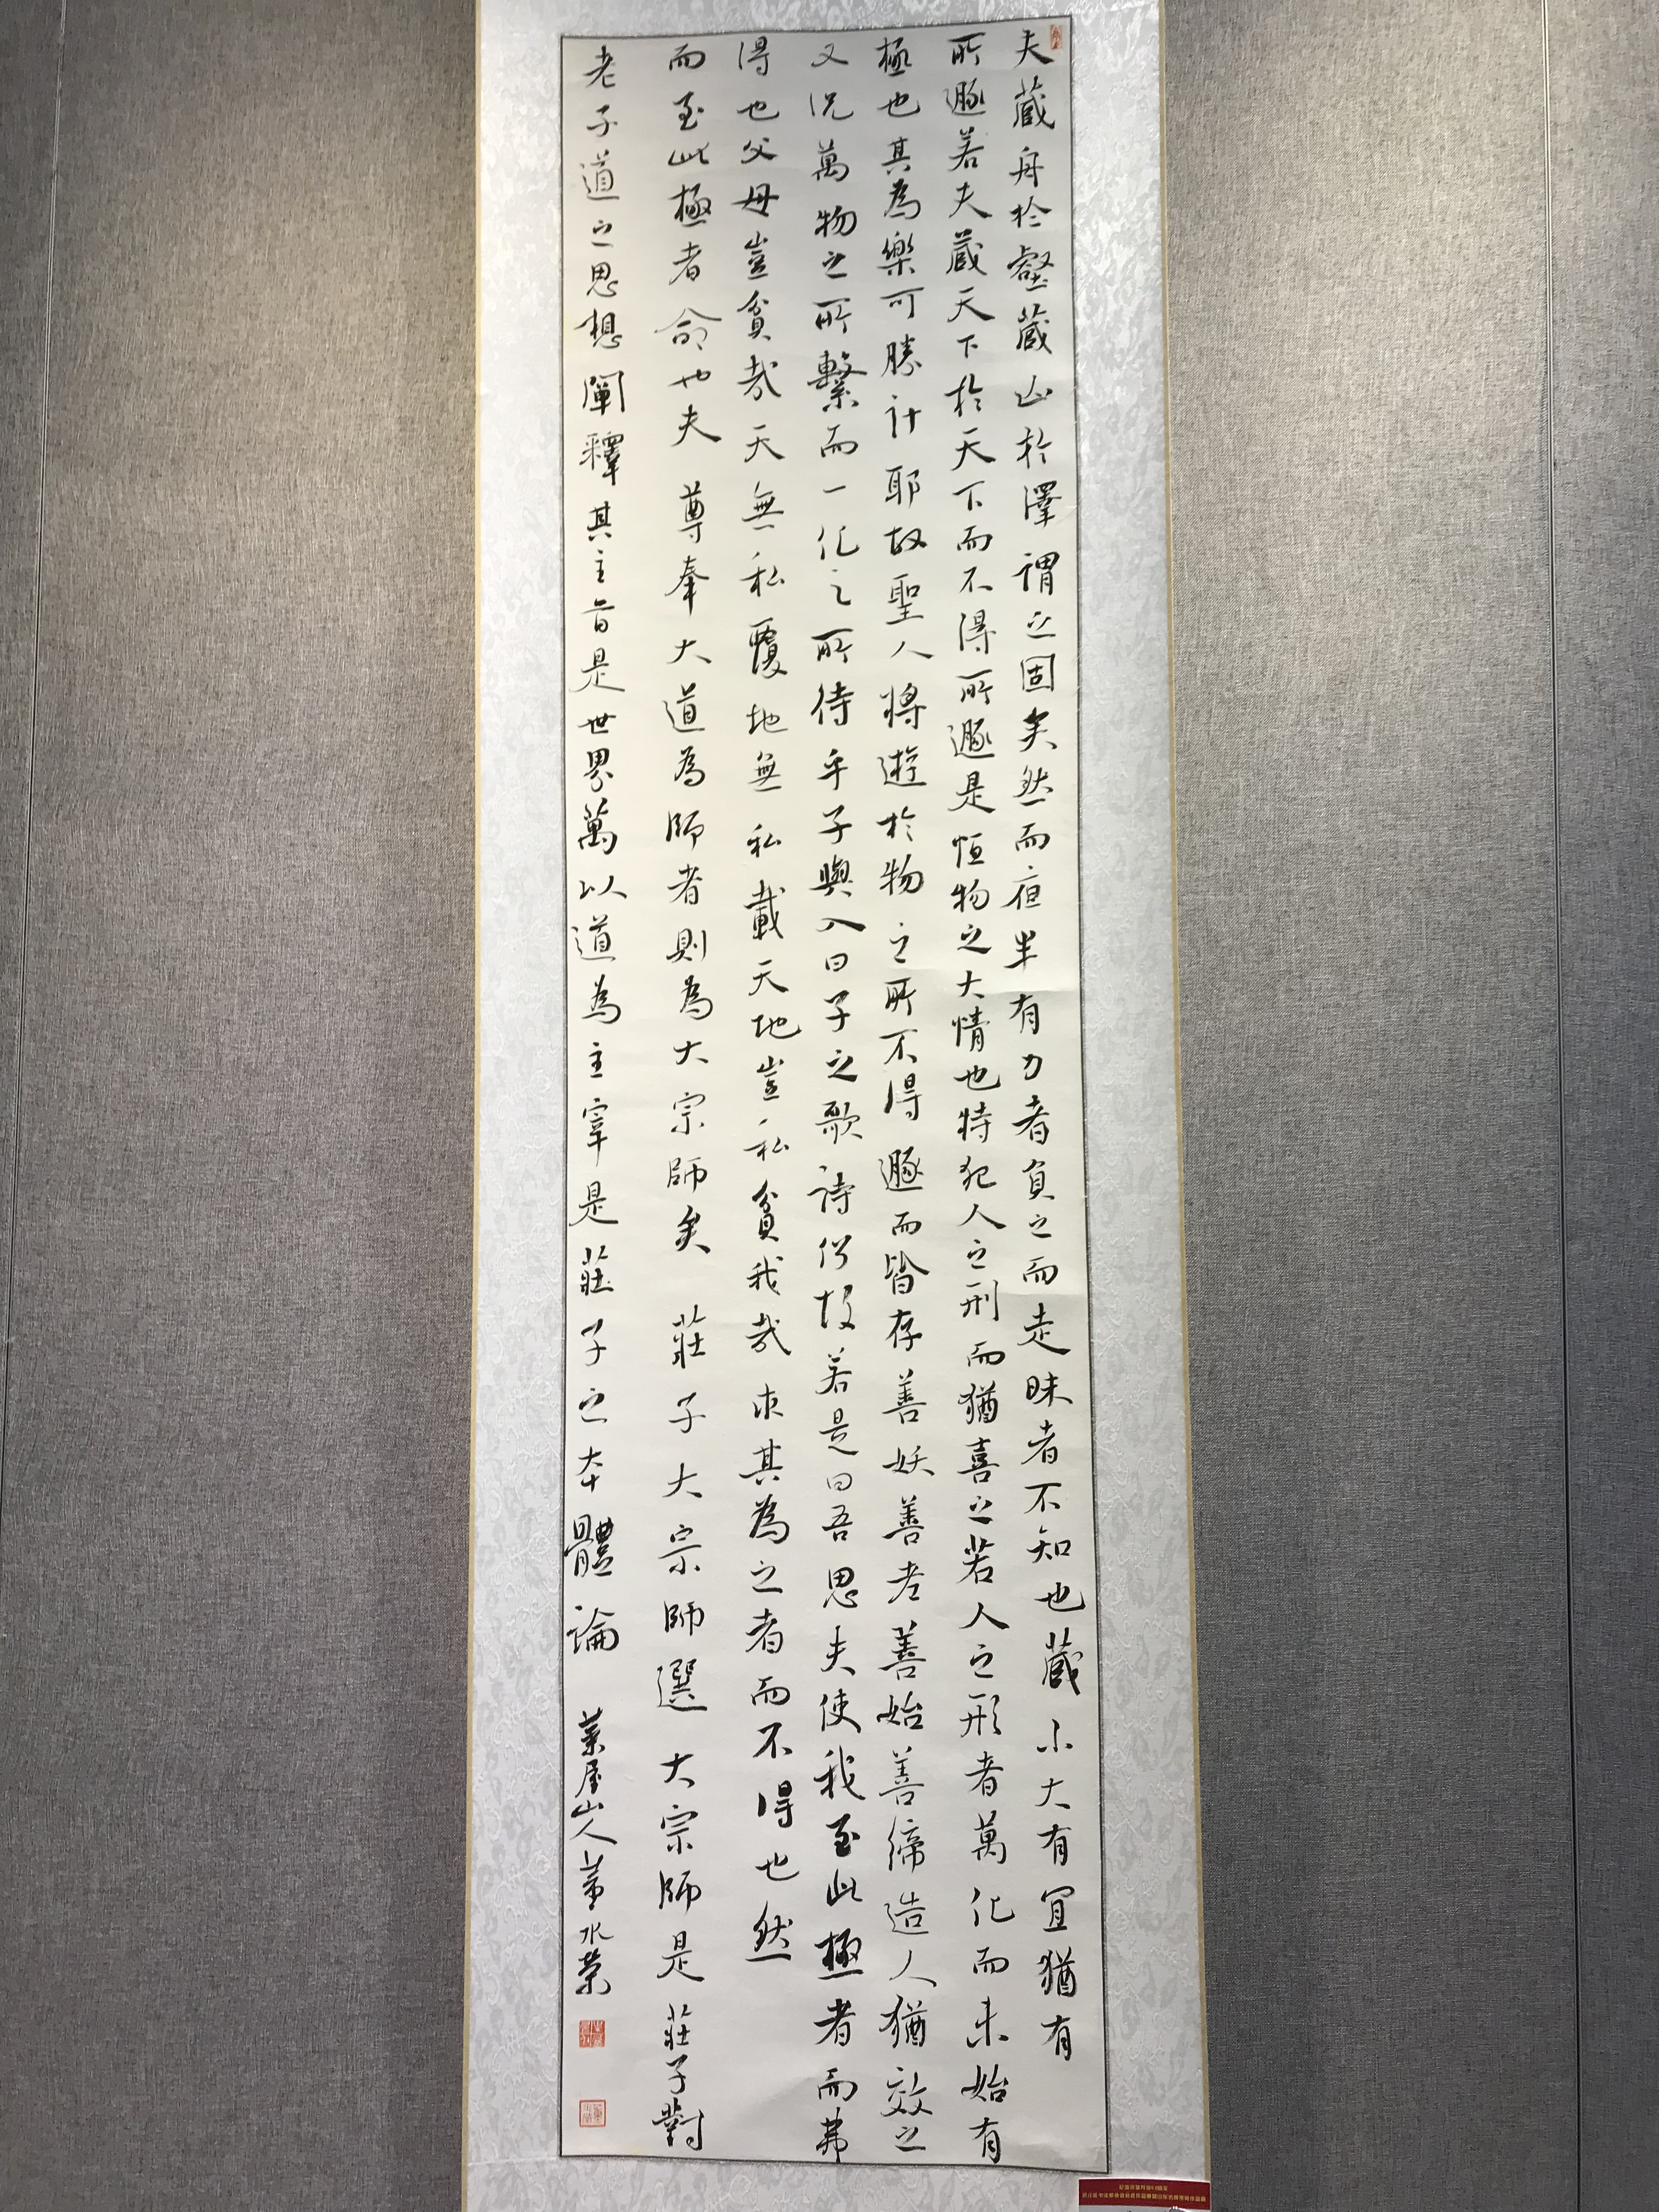 夫藏舟於壑藏山於澤謂之固矣然而夜半有力者負之而走昧者不知也藏小大有宜猶有
所遯若夫藏天下於天下而不得所遯是恒物之大情也特犯人之刑而猶喜之若人之形者萬化而未始有
極也其為樂可勝計耶故聖人將遊於物之所不得遯而皆存善妖善老善始善締造人猶效之
又況萬物之所繫而一化之所待乎子輿入曰子之歌詩何故若是曰吾思夫使我至此極者而弗
得也父母豈貧哉天無私覆地無私載天地豈私貧我哉求其為之者而不得也然
而至此極者命也夫 尊奉大道為師者則為大宗師矣 莊子大宗師選 大宗師是莊子對
老子道之思想闡釋其主旨是世界萬以道為主宰是莊子之本體論 葉屋山人董水榮